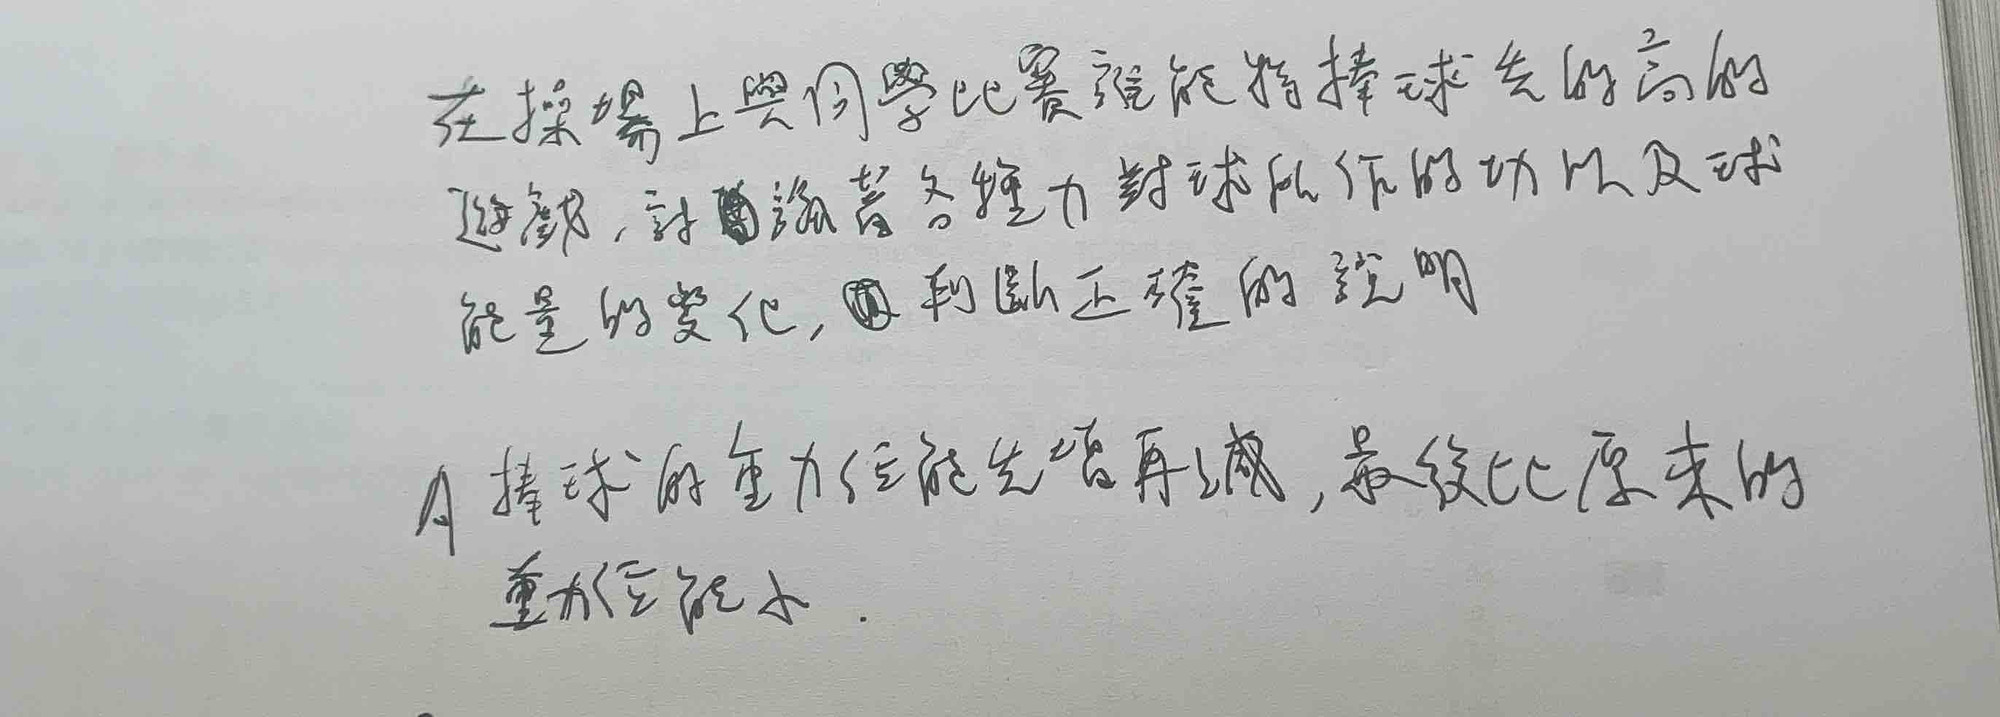 在操場上與同學比賽誰能將棒球丟的高的
遊戲,討論著各種力對球所作的功以及球
能量的變化,判斷正確的說明
A 棒球的重力位能先增再減,最終比原來的
重力位能小.